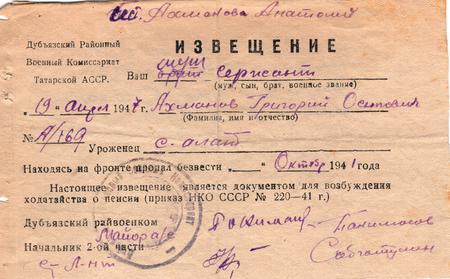 Ахманова Анатолий
Дубъязский Районный
ИЗВЕЩЕНИЕ
Военный Комиссариат
Татарской АССР.
муж
Ваш брат Сержант
(муж, сын, брат, военное звание)
„19“ Апреля 1947г. Ахманов Григорий Осипович
(Фамилия, имя и отчество)
№ А/169
Уроженец с. Алат
Находясь на фронте пропал безвести „ “ Октябр 1941 года
Настоящее извещение является документом для возбуждения
ходатайства о пенсии (приказ НКО СССР № 220—41 г.)
Дубъязский райвоенком
Майор а/с
Начальник 2-ой части